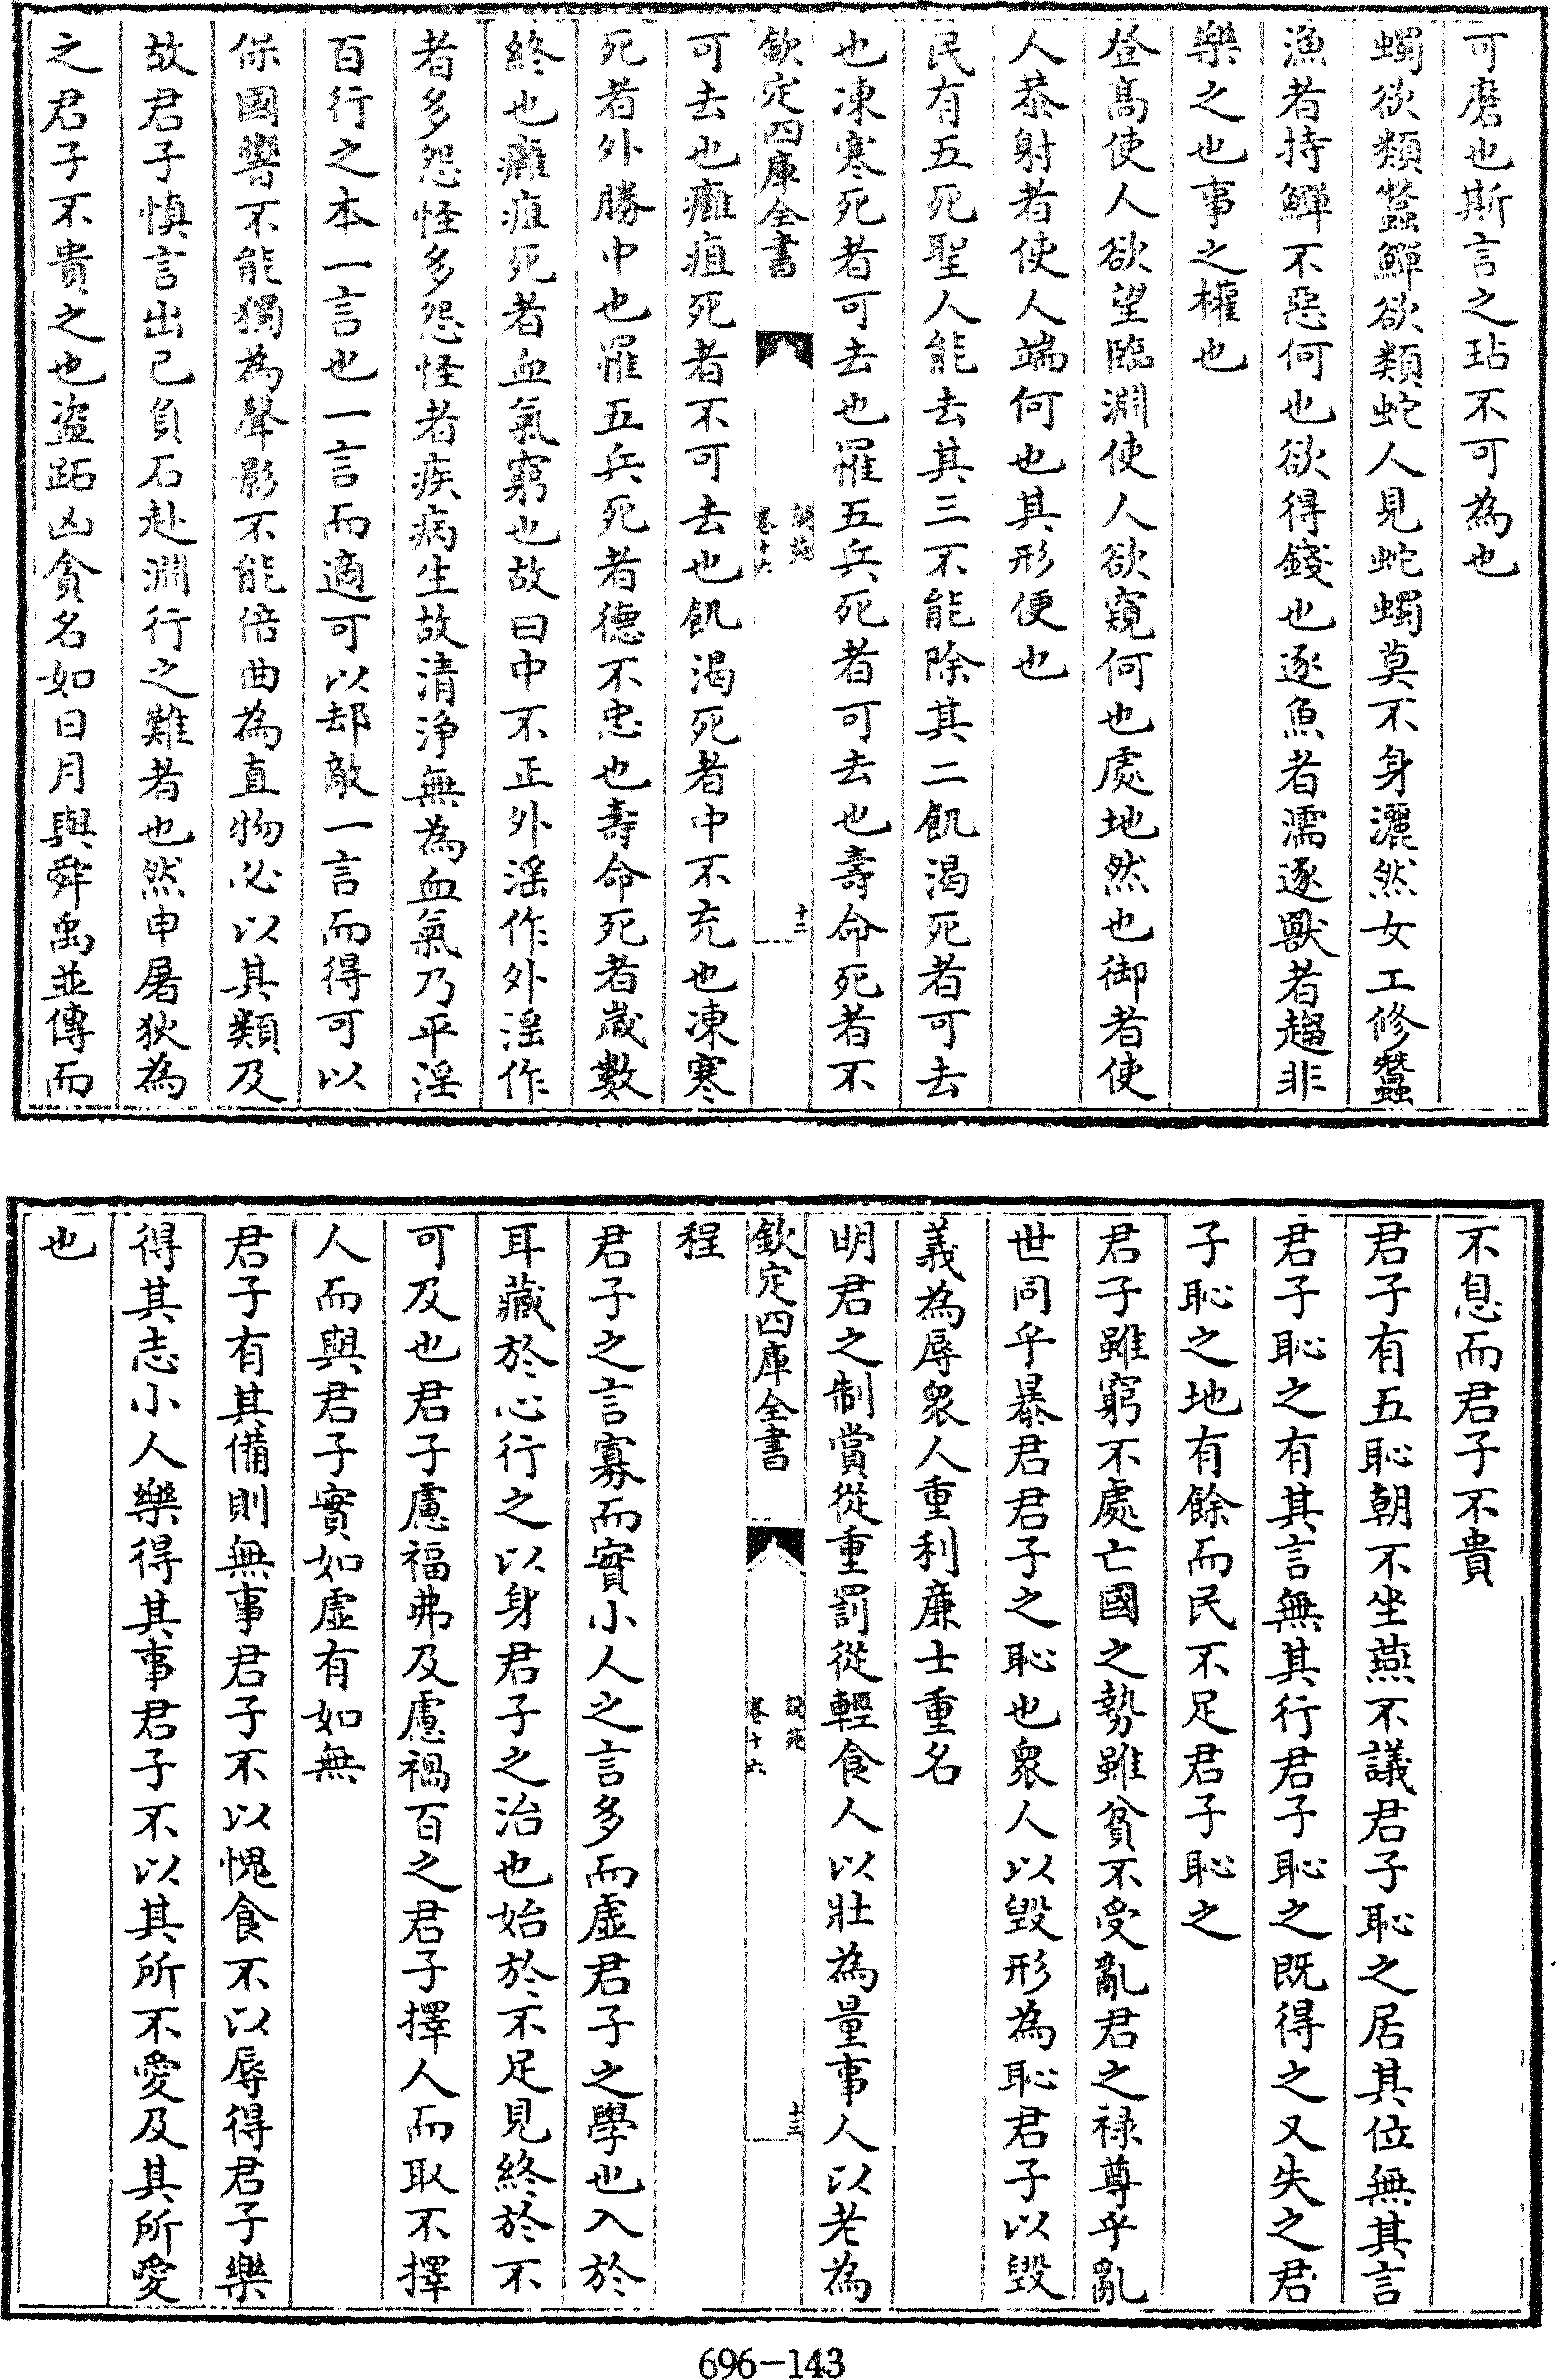 可磨也斯言之玷不可為也
蠋欲類蠶鱓欲類蛇人見蛇蠋莫不身灑然女工修蠶
漁者持鱓不惡何也欲得錢也逐魚者濡逐獸者趨非
樂之也事之權也
登髙使人欲望臨淵使人欲窺何也處地然也御者使
人恭射者使人端何也其形便也
民有五死聖人能去其三不能除其二飢渴死者可去
也凍寒死者可去也罹五兵死者可去也壽命死者不
欽定四庫全書
說苑
卷十六
十三
可去也癰疽死者不可去也飢渴死者中不充也凍寒
死者外勝中也罹五兵死者德不忠也壽命死者歲數
終也癰疽死者血氣窮也故曰中不正外淫作外淫作
者多怨怪多怨怪者疾病生故清淨無為血氣乃平淫
百行之本一言也一言而適可以却敵一言而得可以
保國響不能獨為聲影不能倍曲為直物必以其類及
故君子慎言出已負石赴淵行之難者也然申屠狄為
之君子不貴之也盜跖凶貪名如日月與舜禹並傳而
不息而君子不貴
君子有五恥朝不坐燕不議君子恥之居其位無其言
君子恥之有其言無其行君子恥之既得之又失之君
子恥之地有餘而民不足君子恥之
君子雖窮不處亡國之勢雖貧不受亂君之祿尊乎亂
世同乎暴君君子之恥也衆人以毀形為恥君子以毀
義為辱衆人重利廉士重名
明君之制賞從重罰從輕食人以壯為量事人以老為
欽定四庫全書
說苑
卷十六
十三
程
君子之言寡而實小人之言多而虛君子之學也入於
耳藏於心行之以身君子之治也始於不足見終於不
可及也君子慮福弗及慮禍百之君子擇人而取不擇
人而與君子實如虛有如無
君子有其備則無事君子不以愧食不以辱得君子樂
得其志小人樂得其事君子不以其所不愛及其所愛
也
696-143